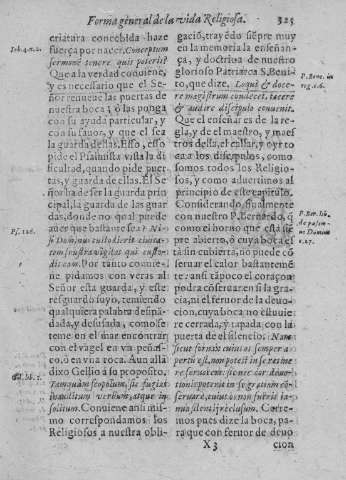 Forma general de la vida Religiosa. 325
criatura concebida haze
fuerça por nacer. Conceptum
sermonē tenere quis poterit?
Que a la verdad conuiene,
y es necesario que el Se
ñor renueue las puertas de
nuestra boca; ò las ponga
con su ayuda particular, y
con su fauor, y que el sea
la guarda dellas. Esso, esso
pide el Psalmista vista la di
ficultad, quando pide puer
tas, y guarda de ellas. El Se
ñor ha de ser la guarda prin
cipal, la guarda de las guar
das, donde no qual puede
auer que bastante sea? Ni-
si Dominus custodierit ciuita-
tem frustra vigilat qui custo-
dit eam. Por tanto conuie-
ne pidamos con veras al
Señor esta guarda, y este
resguardo suyo, temiendo
qualquiera palabra desma-
dada, y desusada, como se
teme en el mar encontrar
con el vagel en vn peñas-
co, ò en vna roca. Aun allà
dixo Gellio à su proposito.
Tamquàm scopulum, sic fugiat
inauditum verbum, atque in-
solitum. Conuiene ansi mis-
mo correspondamos los
Religiosos a nuestra obli-
Iob. 4. n. 2.
Ps. 126.
gaciò, trayédo siēpre muy
en la memoria la enseñan-
ça, y doctrina de nuestro
glorioso Patriarca S. Beni-
to, que dize, Loqui & doce-
re magistrum condecet, tacere
& audire discipulo conuenit.
Que el enseñar es de la re-
gla, y de el maestro, y maes
tros della, el callar, y oyr to
ca a los discipulos, como
somos todos los Religio-
sos, y como aduertimos al
principio de este capitulo.
Considerando finalmente
con nuestro P. Bernardo, q̄
como el horno que està siē
pre abierto, ò cuya boca es
tà sin cubierta, nò puede cō
seruar el calor bastantemē
te: ansi tāpoco el coraçon
podra cōseruar en si la gra-
cia, ni el feruor de la deuo-
cion, cuya boca no estuuie
re cerrada, y tapada con la
puerta de el silencio: Nam
sicut fornax cuius os semper a
pertū est, non potest in se retine
re feruorem: sic nec cor deuo-
tionis poterit in se gratiam cō
seruare, cuius os non fuerit ia-
nua silentij reclusum. Corre-
mos pues dize la boca, pa-
ra que con feruor de deuo
P. Bene. in
reg. c. 6.
P. Ber. lib.
de passio-
ne Domini
c. 27.
X3 cion